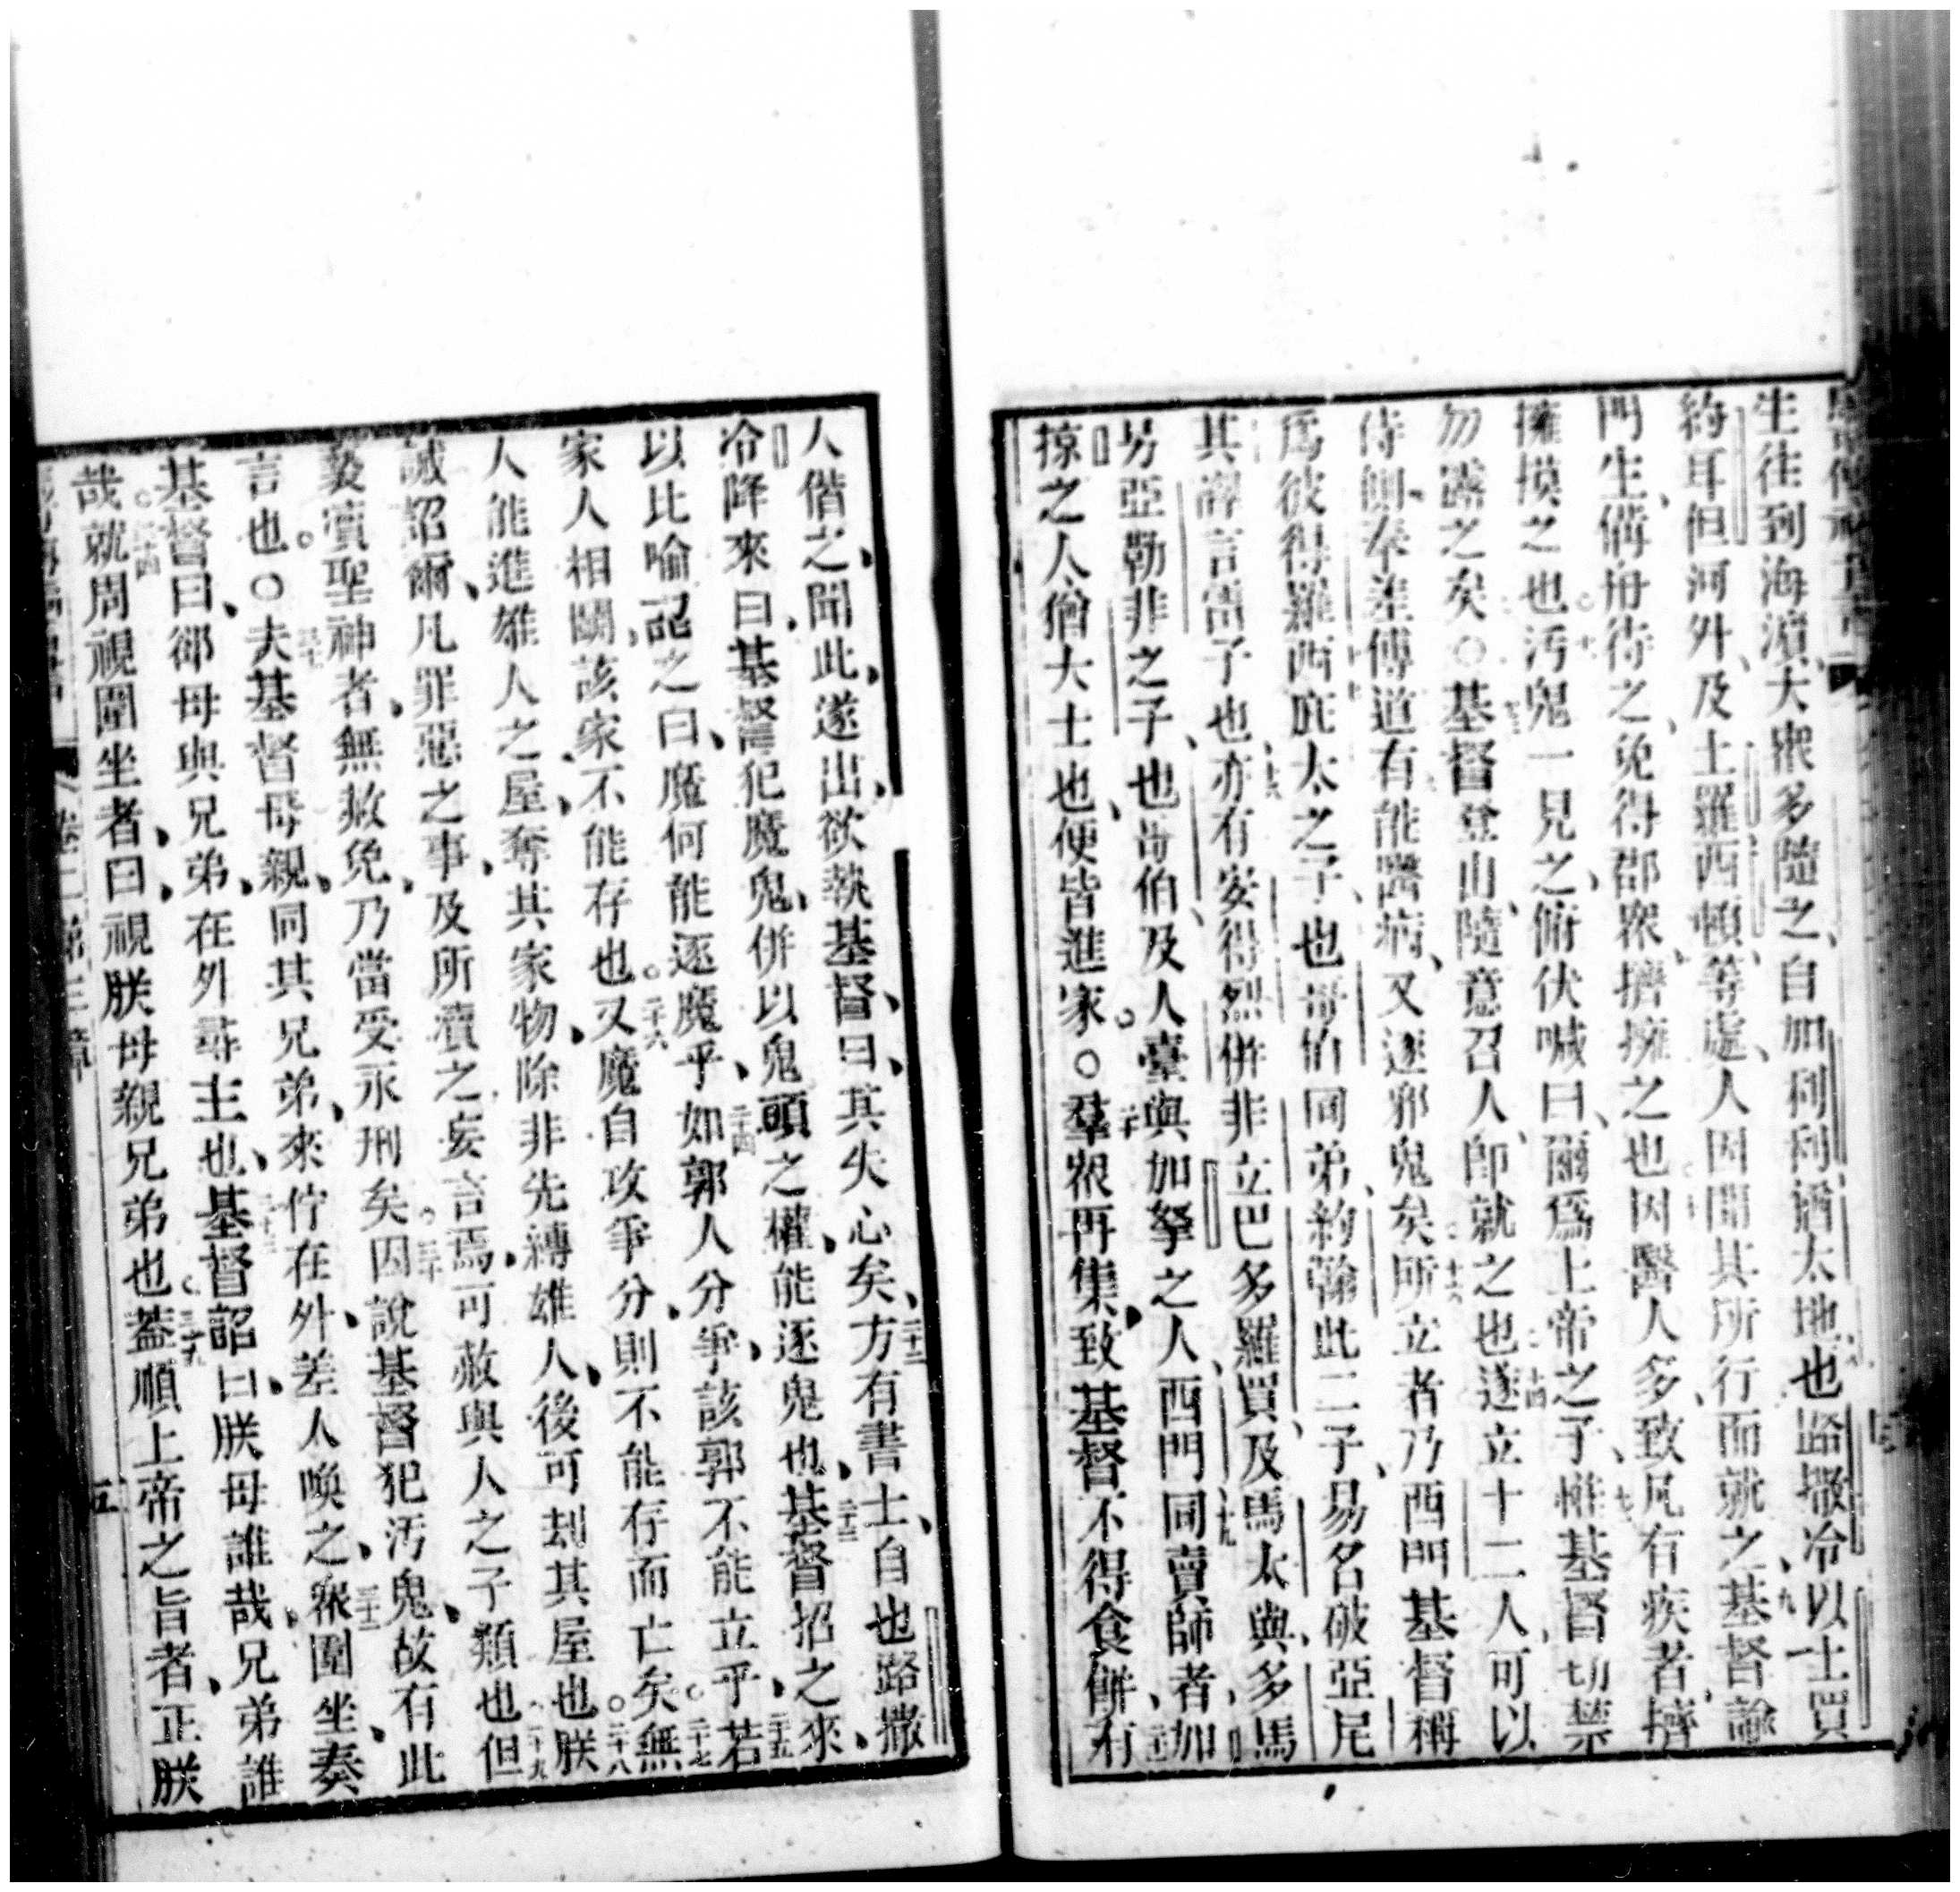 生往到海濵大衆多隨之自加利利猶太地也路撒冷以士買
約耳但河外及土羅西頓等處人因聞其所行而就之九基督諭
門生備舟待之免得郡衆擠擁之也因醫人多致凡有疾者擠
擁摸之也汚鬼一見之俯伏喊曰爾爲上帝之子惟基督切禁
勿露之矣○基督登山隨意召人卽就之也遂立十二人可以
侍側奉差傳道有能醫病又逐邪鬼矣所立者乃西門基督稱
爲彼得羅西庇太之子也耶伯同弟約翰此二子易名破亞尼
其譯言雷子也亦有安得烈併非立巴多羅買及馬太與多馬
另亞勒非之子也耶伯及人臺與加拏之人西門同賣師者加
掠之人猶大士也便皆進家○二十羣衆再集致基督不得食併有
人偕之聞此遂出欲執基督曰其失心矣二十二方有書士自也路撒
冷降來曰基督犯魔鬼併以鬼頭之權能逐鬼也二十三基督招之來
以比喻詔之曰魔何能逐魔乎二十四如郭人分爭該郭不能立乎二十五若
家人相鬬該家不能存也二十六又魔自攻爭分則不能存而亡矣二十七無
人能進雄人之屋奪其家物除非先縛雄人後可刼其屋也二十八朕
誠詔爾凡罪惡之事及所瀆之妄言焉可赦與人之子類也二十九但
妄瀆聖神者無赦免乃當受永刑矣三十因說基督犯汚鬼故有此
言也○三十一夫基督母親同其兄弟來佇在外差人喚之三十二衆圍坐奏
基督曰郤母與兄弟在外尋主也三十三基督詔曰朕母誰哉兄弟誰
哉三十四就周視圍坐者曰視朕母親兄弟也三十五蓋順上帝之旨者正朕
卷二第三章
五